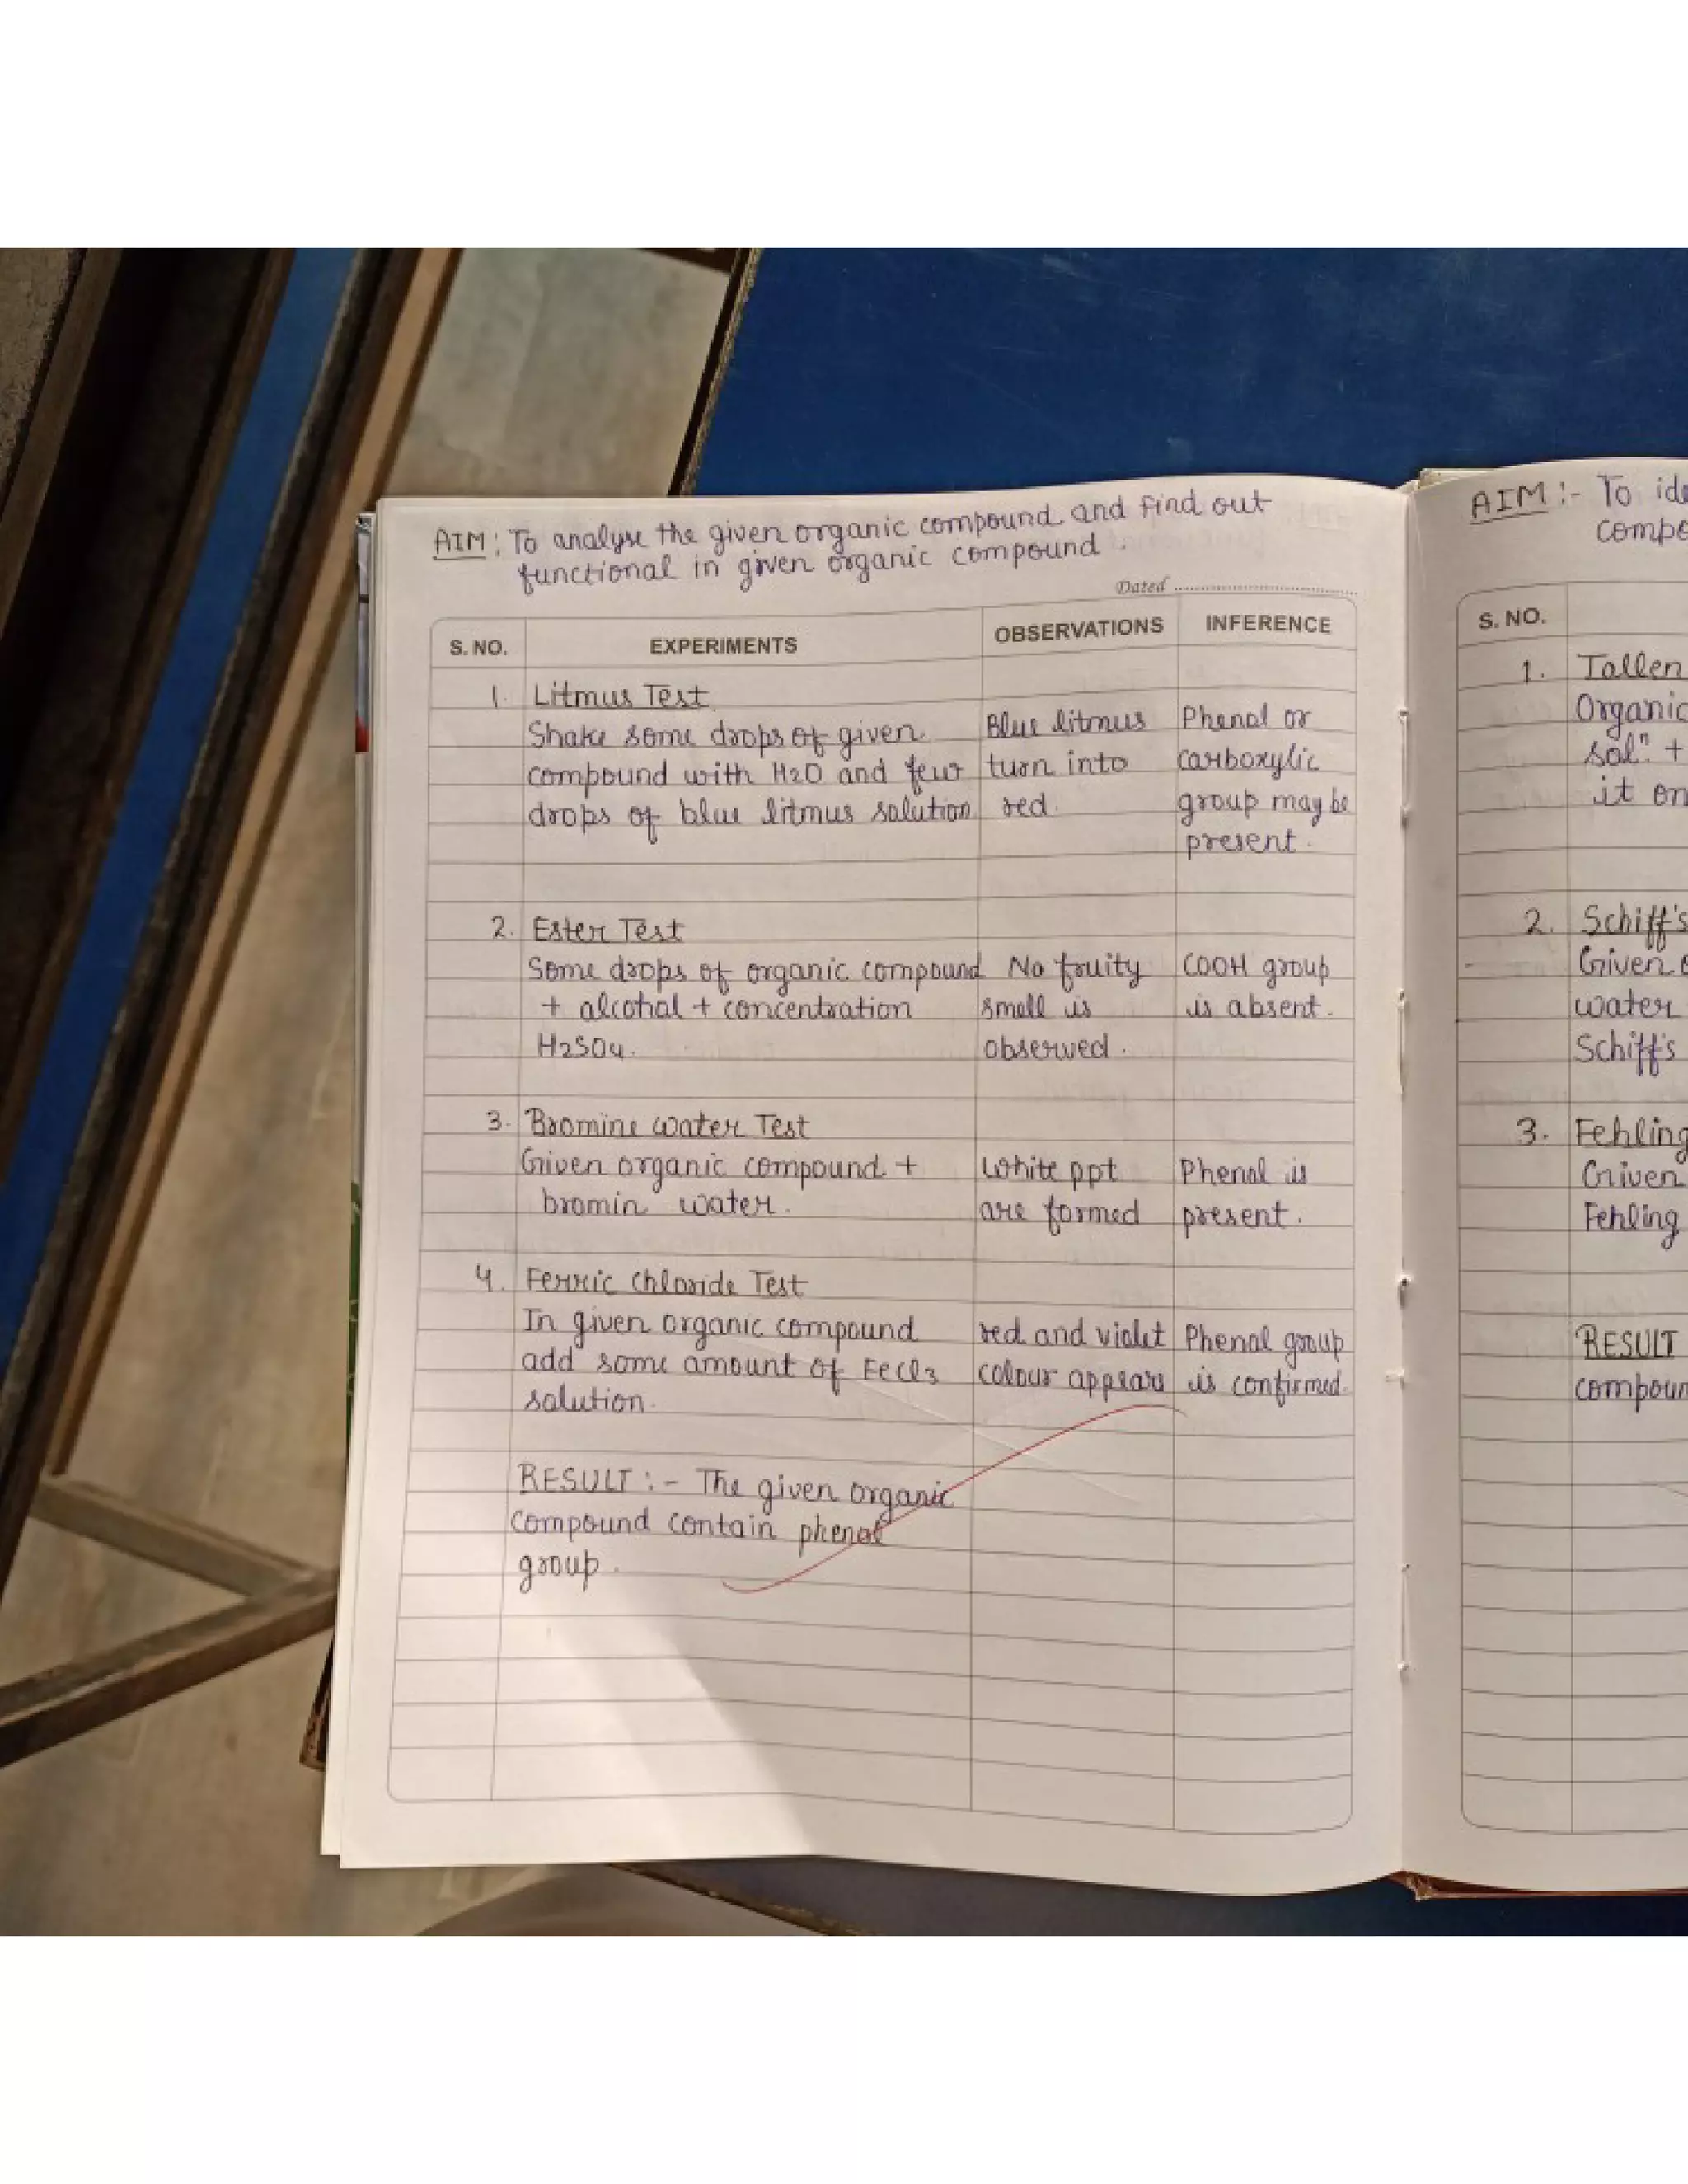 AIM : To analyse the given organic compound and find out
functional in given organic compound.
Dated
S. NO. EXPERIMENTS OBSERVATIONS INFERENCE
1. Litmus Test
Shake some drops of given Blue litmus Phenol or
compound with H2O and few turn into carboxylic
drops of blue litmus solution red. group may be
present.
2. Ester Test
Some drops of organic compound No fruity COOH group
+ alcohol + concentration smell is is absent.
H2SO4. observed.
3. Bromine water Test
Given organic compound + white ppt Phenol is
bromin water. are formed present.
4. Ferric Chloride Test
In given organic compound red and violet Phenol group
add some amount of FeCl3 colour appears is confirmed.
solution.
RESULT :- The given organic
compound contain phenol
group.
AIM :- To ide
compo
S. NO.
1. Tallen
Organic
solⁿ. +
it on
2. Schiff's
Given o
water
Schiff's
3. Fehling
Given
Fehling
RESULT
compoun